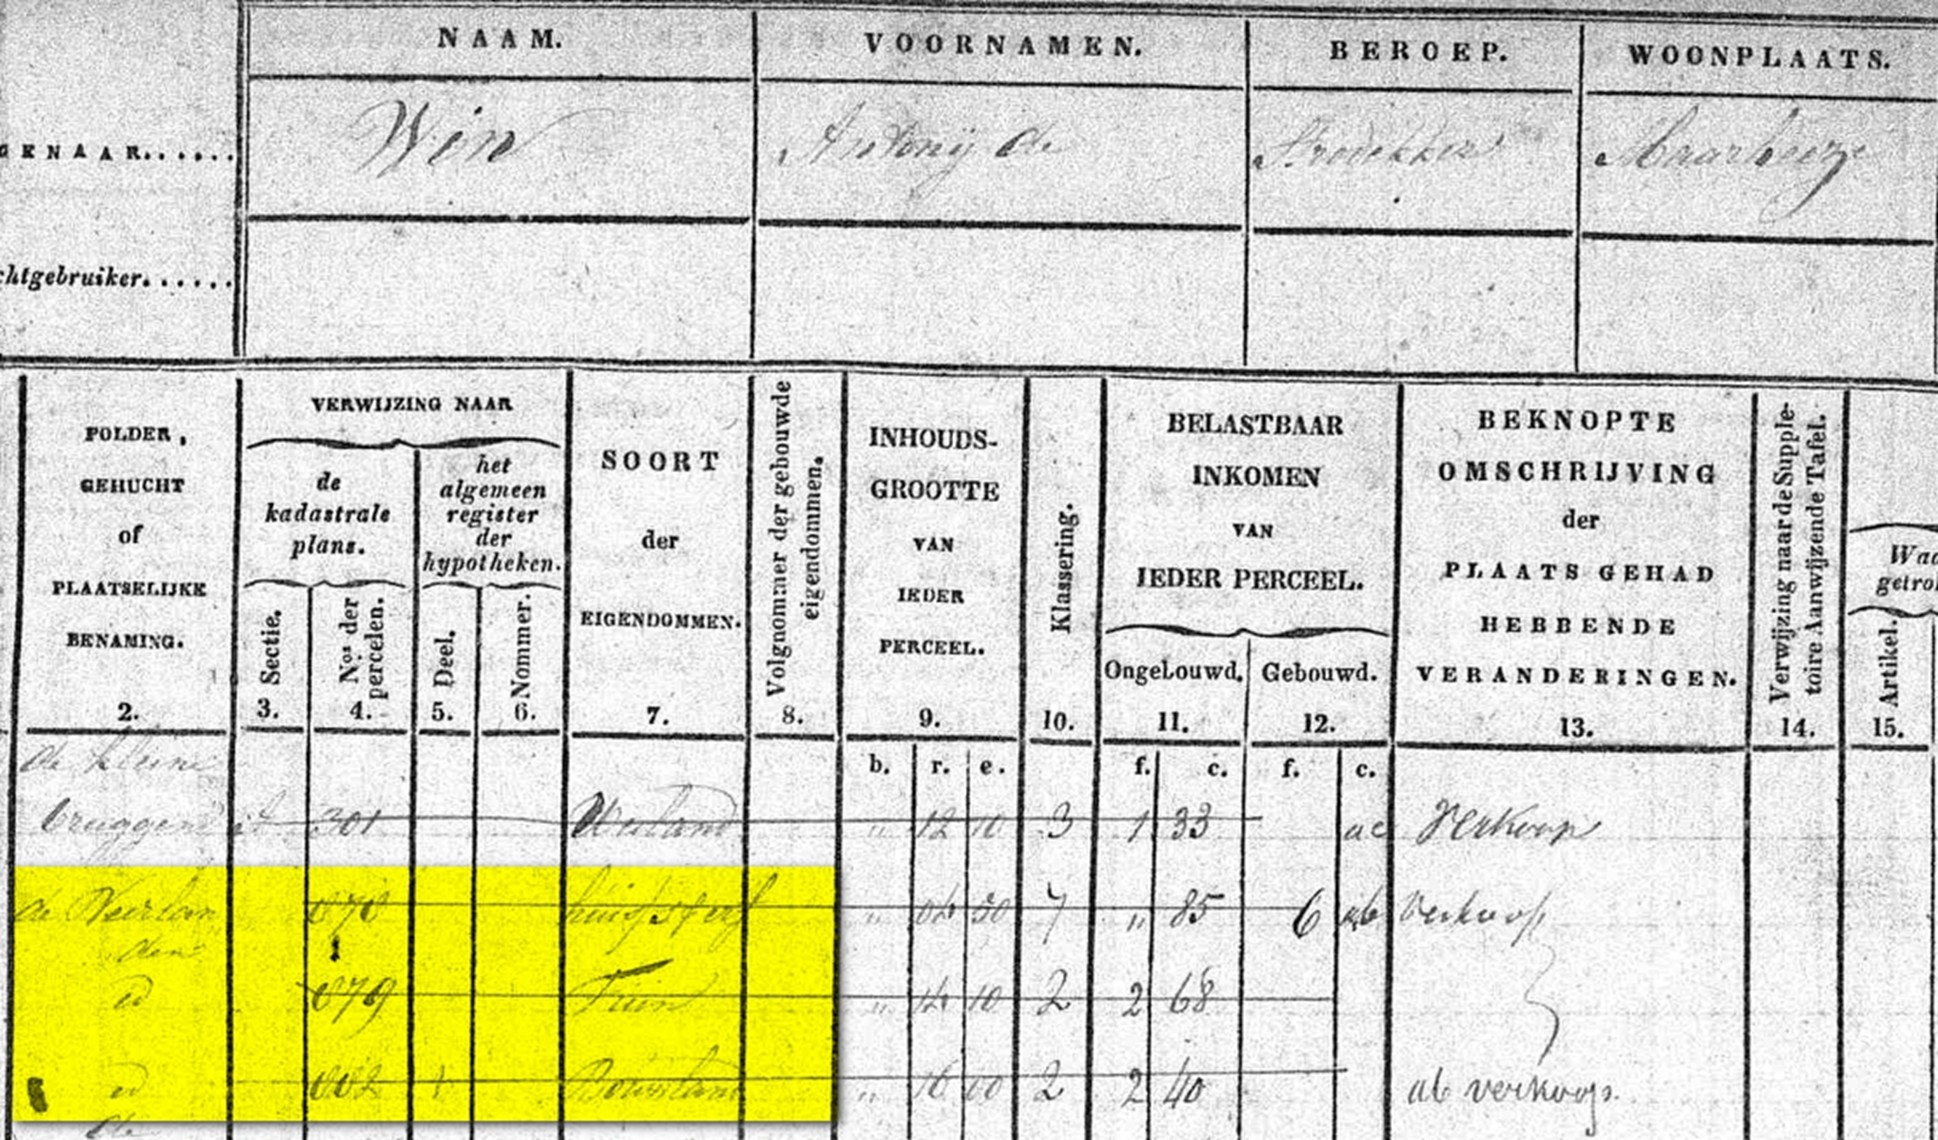 NAAM. VOORNAMEN. BEROEP. WOONPLAATS.
GENAAR...... Win Antonij de Strodekker Maarheeze
chtgebruiker......
POLDER,
GEHUCHT
of
PLAATSELIJKE
BENAMING.
2.
VERWIJZING NAAR
de
kadastrale
plans.
het
algemeen
register
der
hypotheken.
Sectie.
3.
Nos der
percelen.
4.
Deel.
5.
Nommer.
6.
SOORT
der
EIGENDOMMEN.
7.
Volgnommer der gebouwde
eigendommen.
8.
INHOUDS-
GROOTTE
VAN
IEDER
PERCEEL.
9.
Klassering.
10.
BELASTBAAR
INKOMEN
VAN
IEDER PERCEEL.
Ongebouwd. Gebouwd.
11. 12.
BEKNOPTE
OMSCHRIJVING
der
PLAATS GEHAD
HEBBENDE
VERANDERINGEN.
13.
Verwijzing naar de Supple-
toire Aanwijzende Tafel.
14.
Waa
getro
Artikel.
15.
b. r. e. f. c. f. c.
de kleine
bruggen 301 Weiland " 12 10 3 1 33 Verkoop
de Neerlan 878 huis & erf " 04 50 7 " 85 6 Verkoop
den
id 879 Tuin " 14 10 2 2 68
id 882 Bouwland " 16 00 2 2 40 ab verkoop.
de